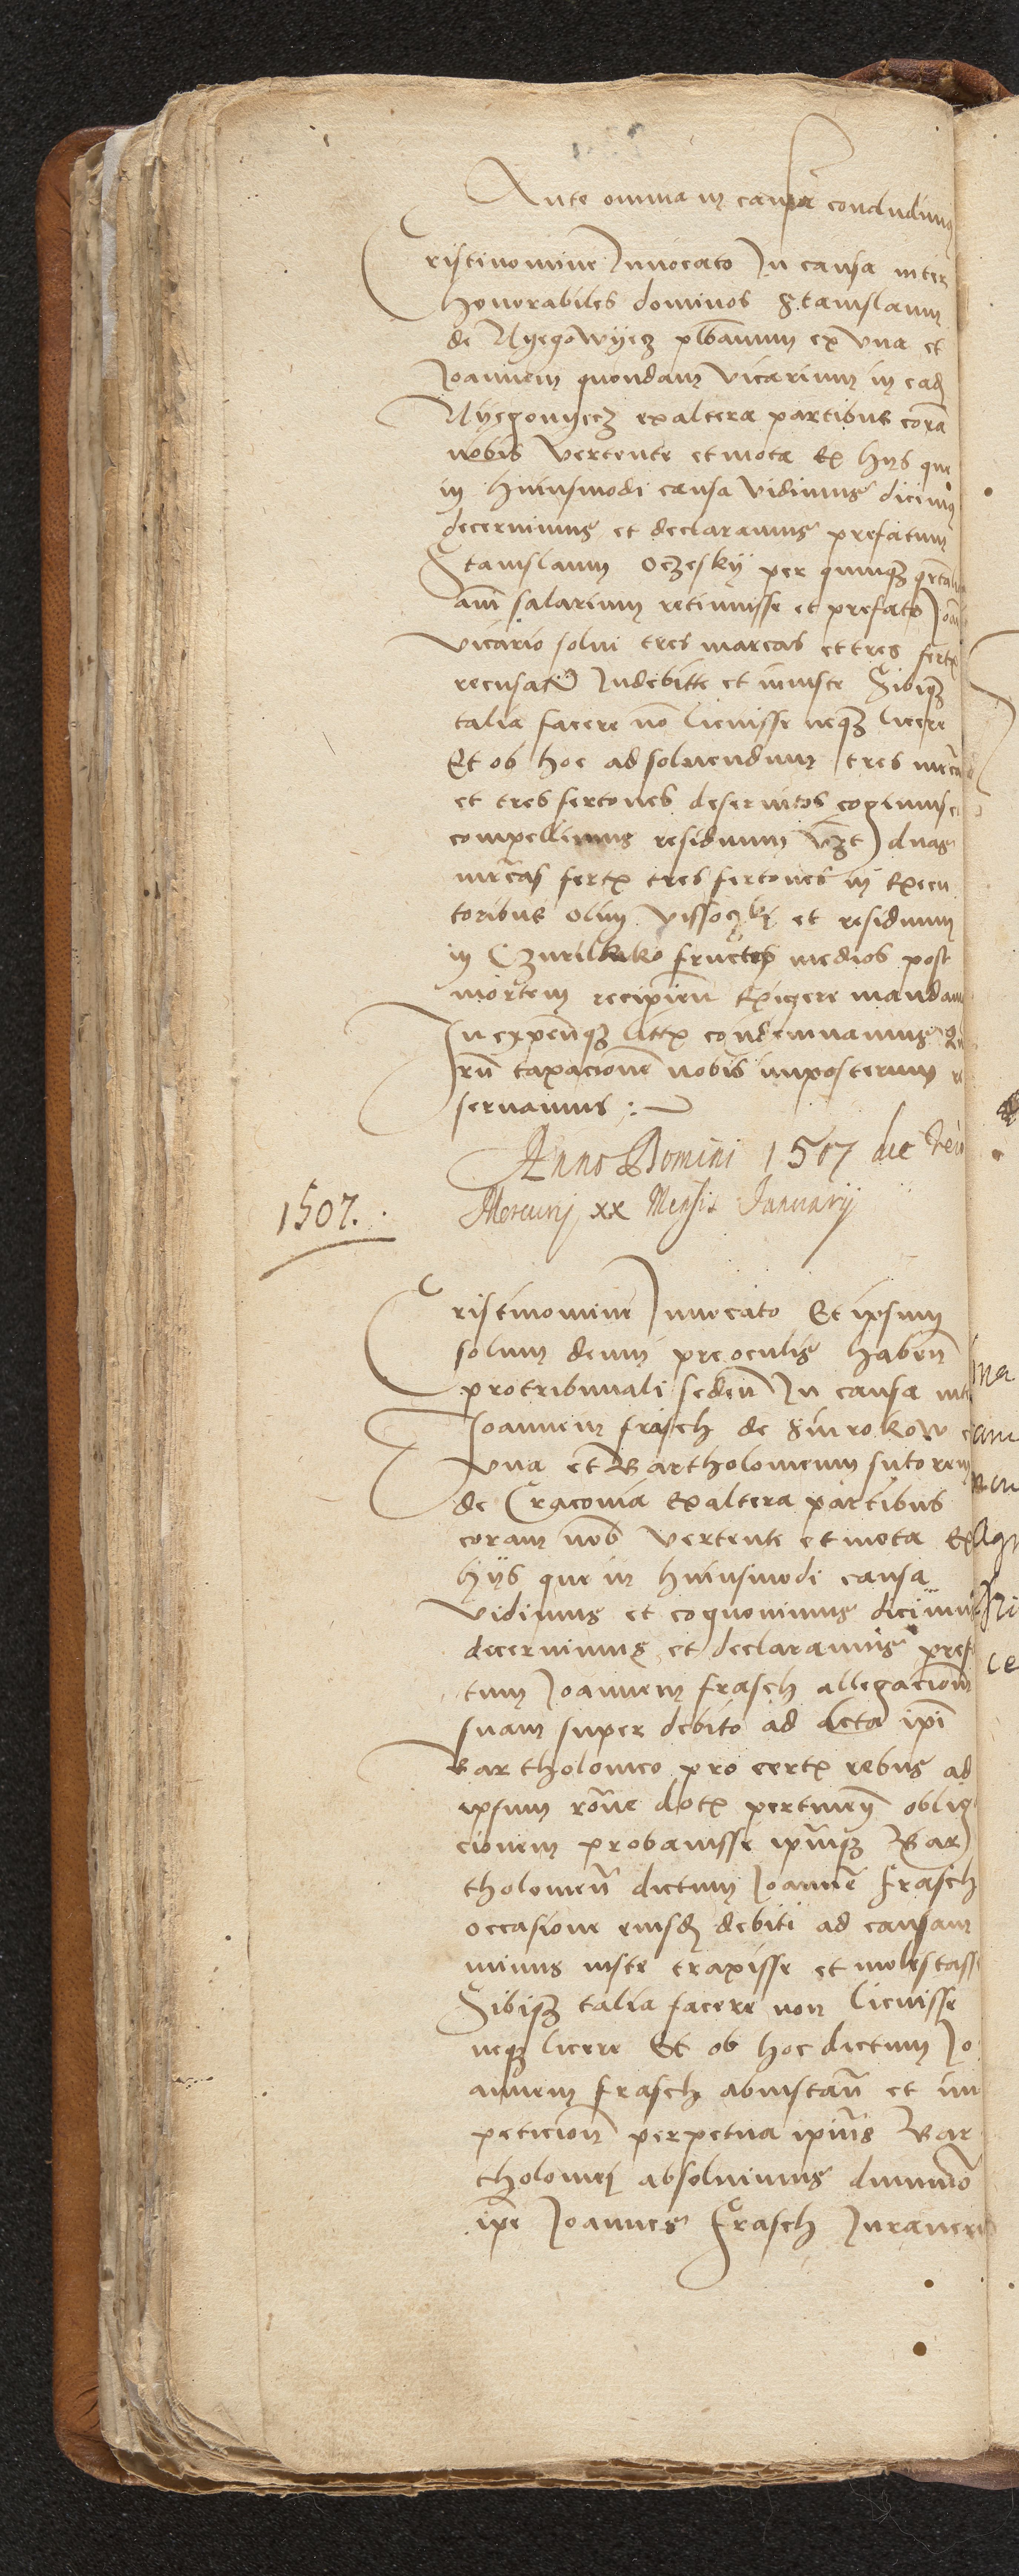 Ante omnia in causa concludimus
Cristinomine Innocato In causa inter
honorabiles dominos Stanislaum
de Nyegowyecz plbanum ex vna et
Joannem quondam vicarium in ead
Nyegowyecz exaltera partibus cora
nobis vertente et mota Ex hys que
in huiusmodi causa vidimus dicimus
decernimus et declaramus prefatum
Stanislaum Oczesky per quinqz
salarium retinuisse et prefato Joan
vicario solui tres marcas et tres fert
recusare Indebitte et iniuste Sibiqz
talia facere no licuisse neqz licere
Et ob hoc ad soluendum tres mrcas
et tres fertones deseruitos
compellimus residuum vzt duas
mrcas fert tres fertones in Execu
toribus olim et residuum
in fructus medios post
mortem recipien Exigere mandam
In expensqz litt condemnamus qu
rum taxacionem nobis imposterum re
seruamus :~
Anno Domini 1507 die
1507. Mercurij xx Mensis Januarij
Cristinomine Innocato Et ipsum
solum deum preoculis haben
protribunali seden In causa int
Joannem frasch de Smrokow e
vna et Bartholomeum sutorem
de Cracouia Exaltera partibus
coram nob vertente et mota Ex
hijs que in huiusmodi causa
vidimus et cognouimus dicimus
decernimus et declaramus pref
tum Joannem frasch allegacionem
suam super debito ad acta ipi
Bartholomeo pro cert rebus ad
ipsum rone dot pertinen oblig
cionem probauisse ipmqz Bar
tholomeu dictum Joanne frasch
occasione eiusd debiti ad causam
minus iuste traxisse et molestasse
Sibiqz talia facere non licuisse
neqz licere Et ob hoc dictum Jo
annem frasch abinstan et im
peticion perpetua ipius Bar
tholomei absoluimus dummo
ipe Joannes Frasch Jurauerit